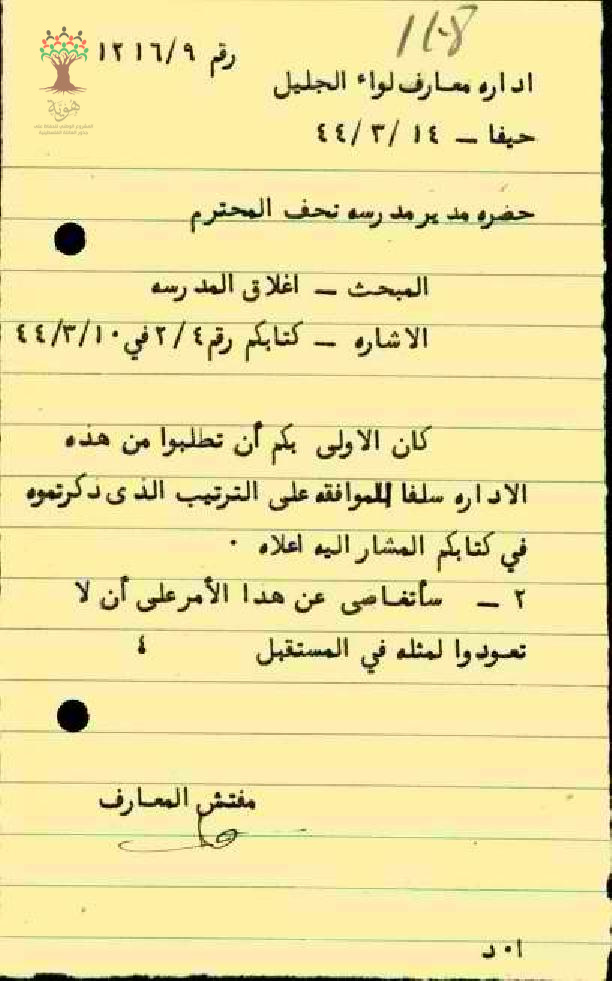 118
رقم ١٢١٦/٩
اداره معارف لواء الجليل
حيفا — ١٤ /٣ /٤٤
حضره مدير مدرسه نحف المحترم
المبحث — اغلاق المدرسه
الاشاره — كتابكم رقم ٢/٤ في ٤٤/٣/١٠
كان الاولى بكم أن تطلبوا من هذه
الاداره سلفا الموافقه على الترتيب الذى ذكرتموه
في كتابكم المشار اليه اعلاه ٠
٢ — سأتغاضى عن هذا الأمر على أن لا
تعودوا لمثله في المستقبل
مفتش المعارف
ا٠د
هوية